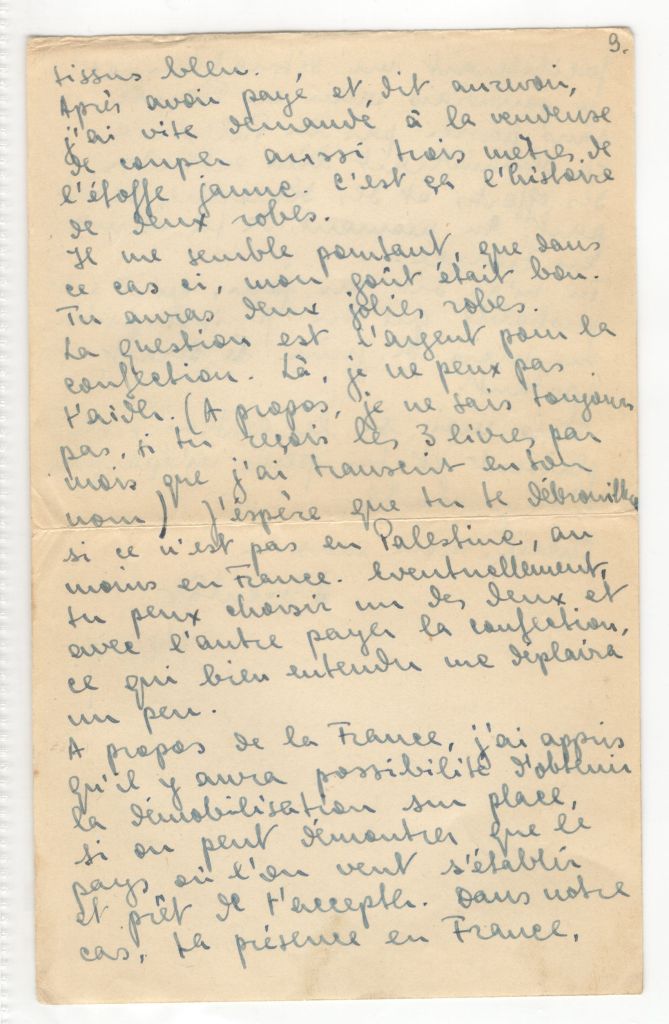 9.
tissus bleu.
Après avoir payé et dit aurevoir,
j'ai vite demandé à la vendeuse
de couper aussi trois mètres de
l'étoffe jaune. C'est ça l'histoire
de deux robes.
Il me semble pourtant, que dans
ce cas ci, mon goût était bon.
Tu auras deux jolies robes.
La question est l'argent pour la
confection. Là, je ne peux pas
t'aider. (A propos, je ne sais toujours
pas, si tu reçois les 3 livres par
mois que j'ai transcrit en ton
nom) J'espère que tu te débrouilles
si ce n'est pas en Palestine, au
moins en France. Eventuellement,
tu peux choisir un des deux et
avec l'autre payer la confection,
ce qui bien entendu me deplaira
un peu.
A propos de la France, j'ai appris
qu'il y aura possibilité d'obtenir
la démobilisation sur place,
si on peut démontrer que le
pays où l'on veut s'établir
et prêt de t'accepter. Dans notre
cas, ta présence en France,